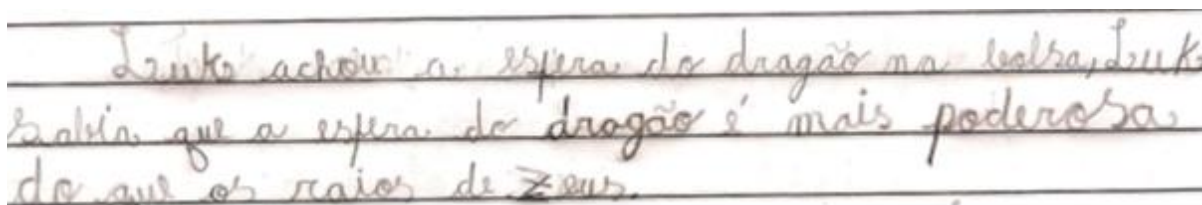 Luke achou a esfera do dragão na bolsa, Luke
sabia que a esfera do dragão é mais poderosa
do que os raios de Zeus.